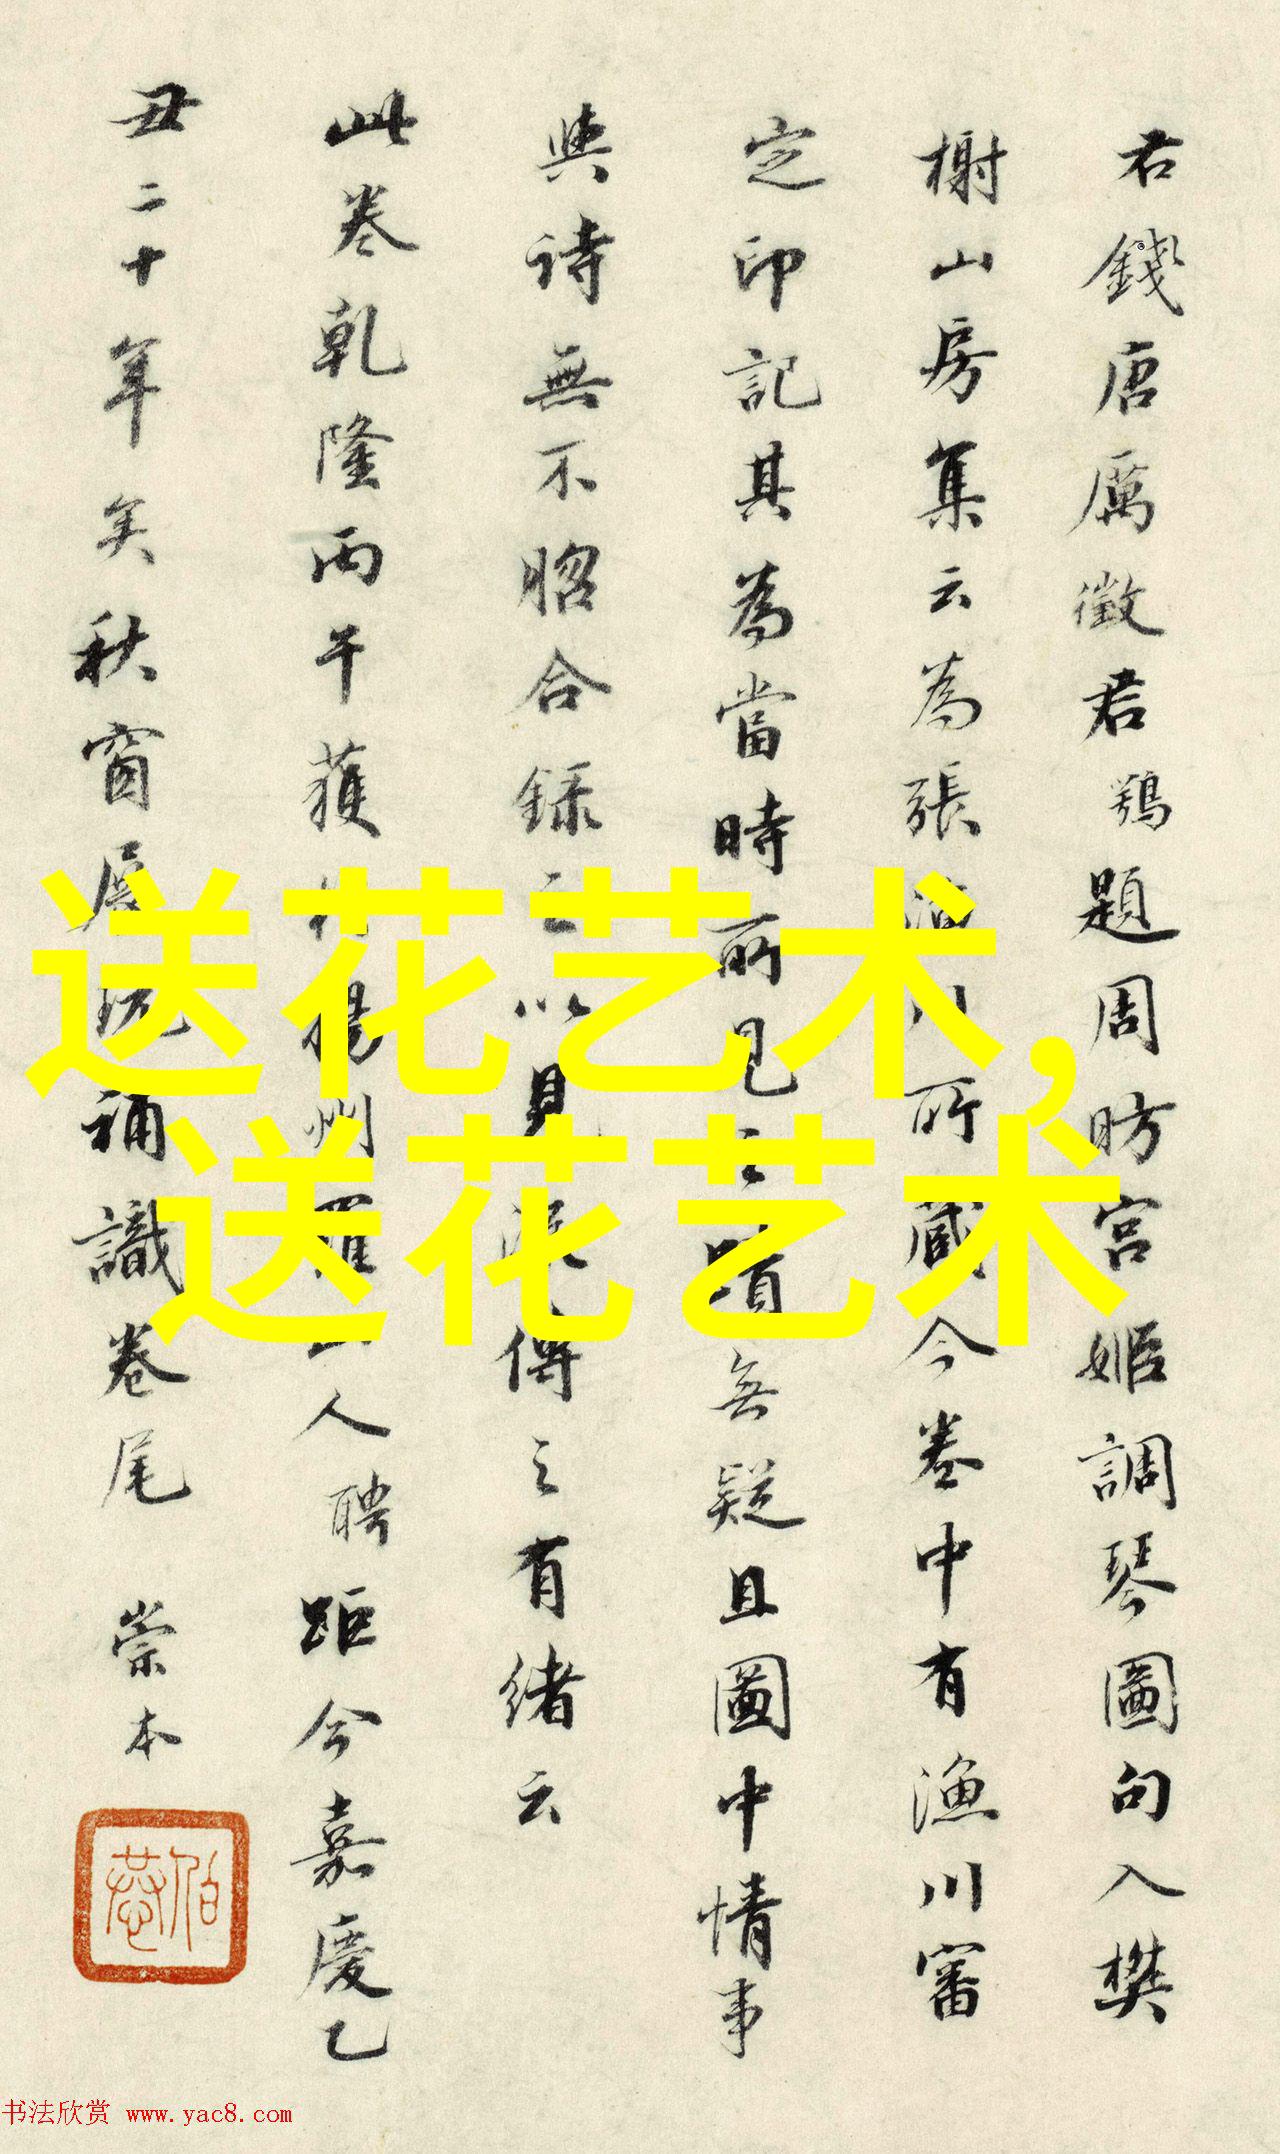 君錢唐厲徵君鶚題周昉宮姬調琴圖句入樊
榭山房集云為張漁川所藏今卷中有漁川審
定印記其為當時所見之蹟無疑且圖中情事
與詩無不昭合錄之以見流傳之有緒云
此卷乾隆丙午獲楊州羅山人聘距今嘉慶乙
丑二十年矣秋窗展玩補識卷尾 崇本
送花艺术,
送花艺术
书法欣赏 www.yac8.com